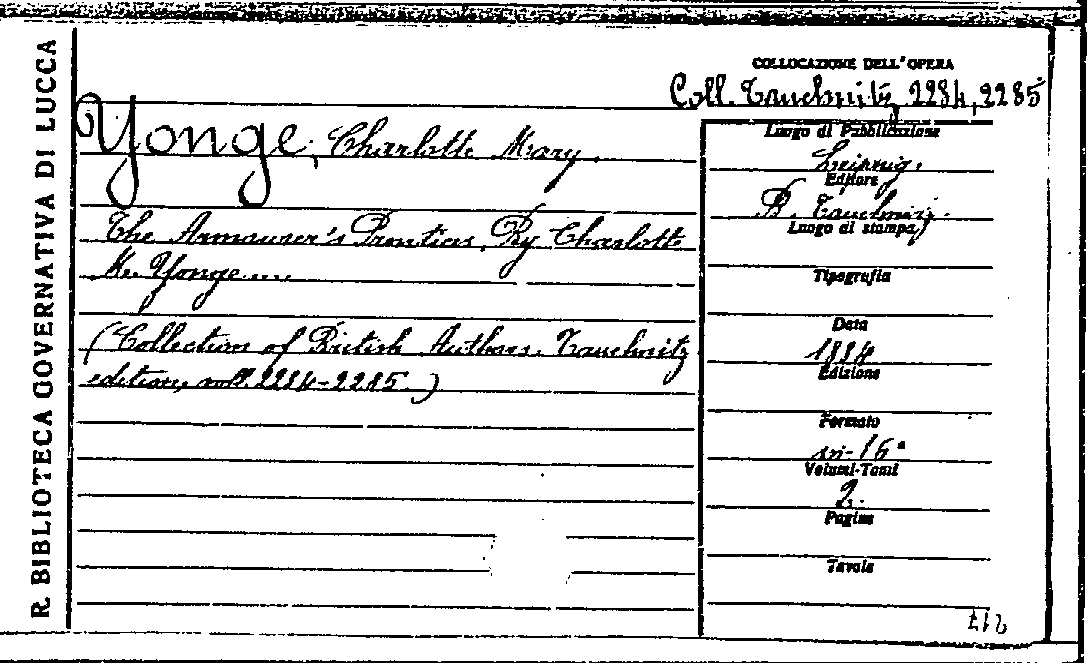 R. BIBLIOTECA GOVERNATIVA DI LUCCA
COLLOCAZIONE DELL'OPERA
Coll. Tauchnitz, 2284, 2285
Yonge, Charlotte Mary.
The Armourer's Prentices, By Charlotte
M. Yonge....
(Collection of British Authors. Tauchnitz
edition, voll. 2284-2285.)
Luogo di Pubblicazione
Leipzig.
Editore
B. Tauchnitz.
Luogo di stampa
Tipografia
Data
1884
Edizione
Formato
in-16°
Volumi-Tomi
2.
Pagine
Tavole